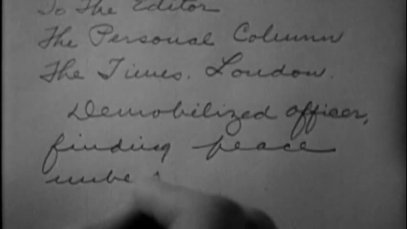 To The Editor
The Personal Column
The Times. London.
Demobilized officer,
finding peace
unbe